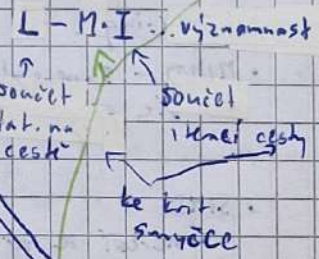 L - M·I ... významnost
součet
lat. na
cestě
součet
iterací cesty
ke krit.
smyčce